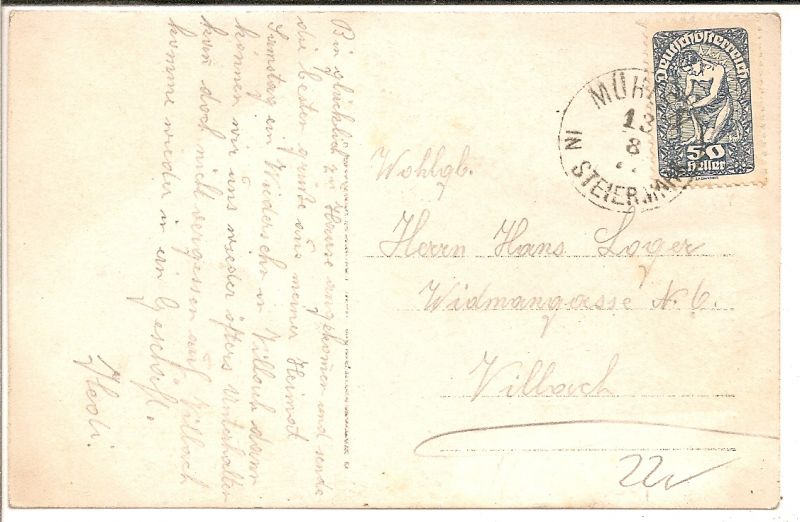 Bin glücklich zu Hause angekommen und sende
die besten grüße aus meiner Heimat
Samstag ein Wiedersehn in Villach dann
können wir uns wieder öfters unterhalten
kan doch nicht vergessen auf Villach
komme wieder in ein Geschäft.
Hedi.
Deutschösterreich
50
Heller
MÜR
13
8
IN STEIERMARK
Wohlgb.
Herrn Hans Loger
Widmangasse N. 6.
Villach